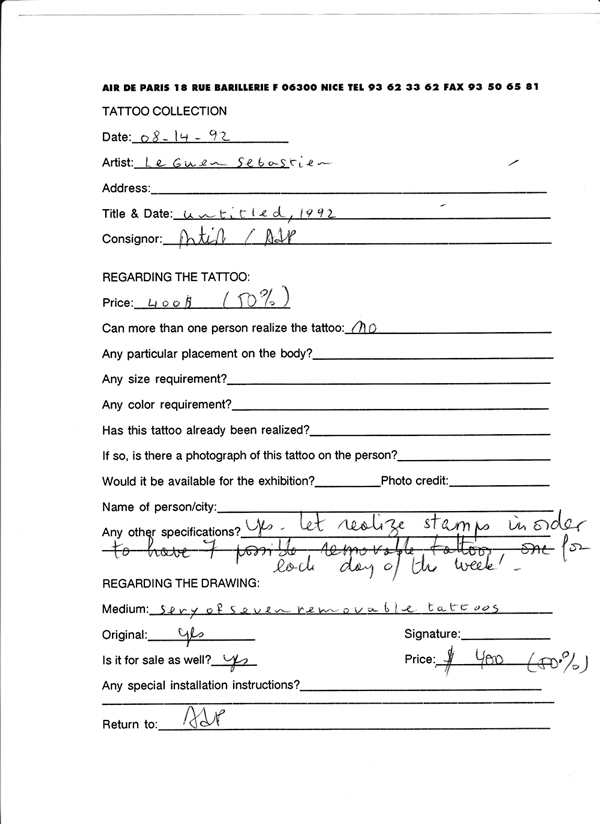 AIR DE PARIS 18 RUE BARILLERIE F 06300 NICE TEL 93 62 33 62 FAX 93 50 65 81
TATTOO COLLECTION
Date: 08-14-92
Artist: Le Guen Sebastien
Address:
Title & Date: untitled, 1992
Consignor: Artist / AdP
REGARDING THE TATTOO:
Price: 400$ (50%)
Can more than one person realize the tattoo: NO
Any particular placement on the body?
Any size requirement?
Any color requirement?
Has this tattoo already been realized?
If so, is there a photograph of this tattoo on the person?
Would it be available for the exhibition? Photo credit:
Name of person/city:
Any other specifications? Yes. let realize stamps in order
to have 7 possible removable tattoo, one for
each day of the week! -
REGARDING THE DRAWING:
Medium: sery of seven removable tattoos
Original: yes Signature:
Is it for sale as well? yes Price: $ 400 (50%)
Any special installation instructions?
Return to: AdP